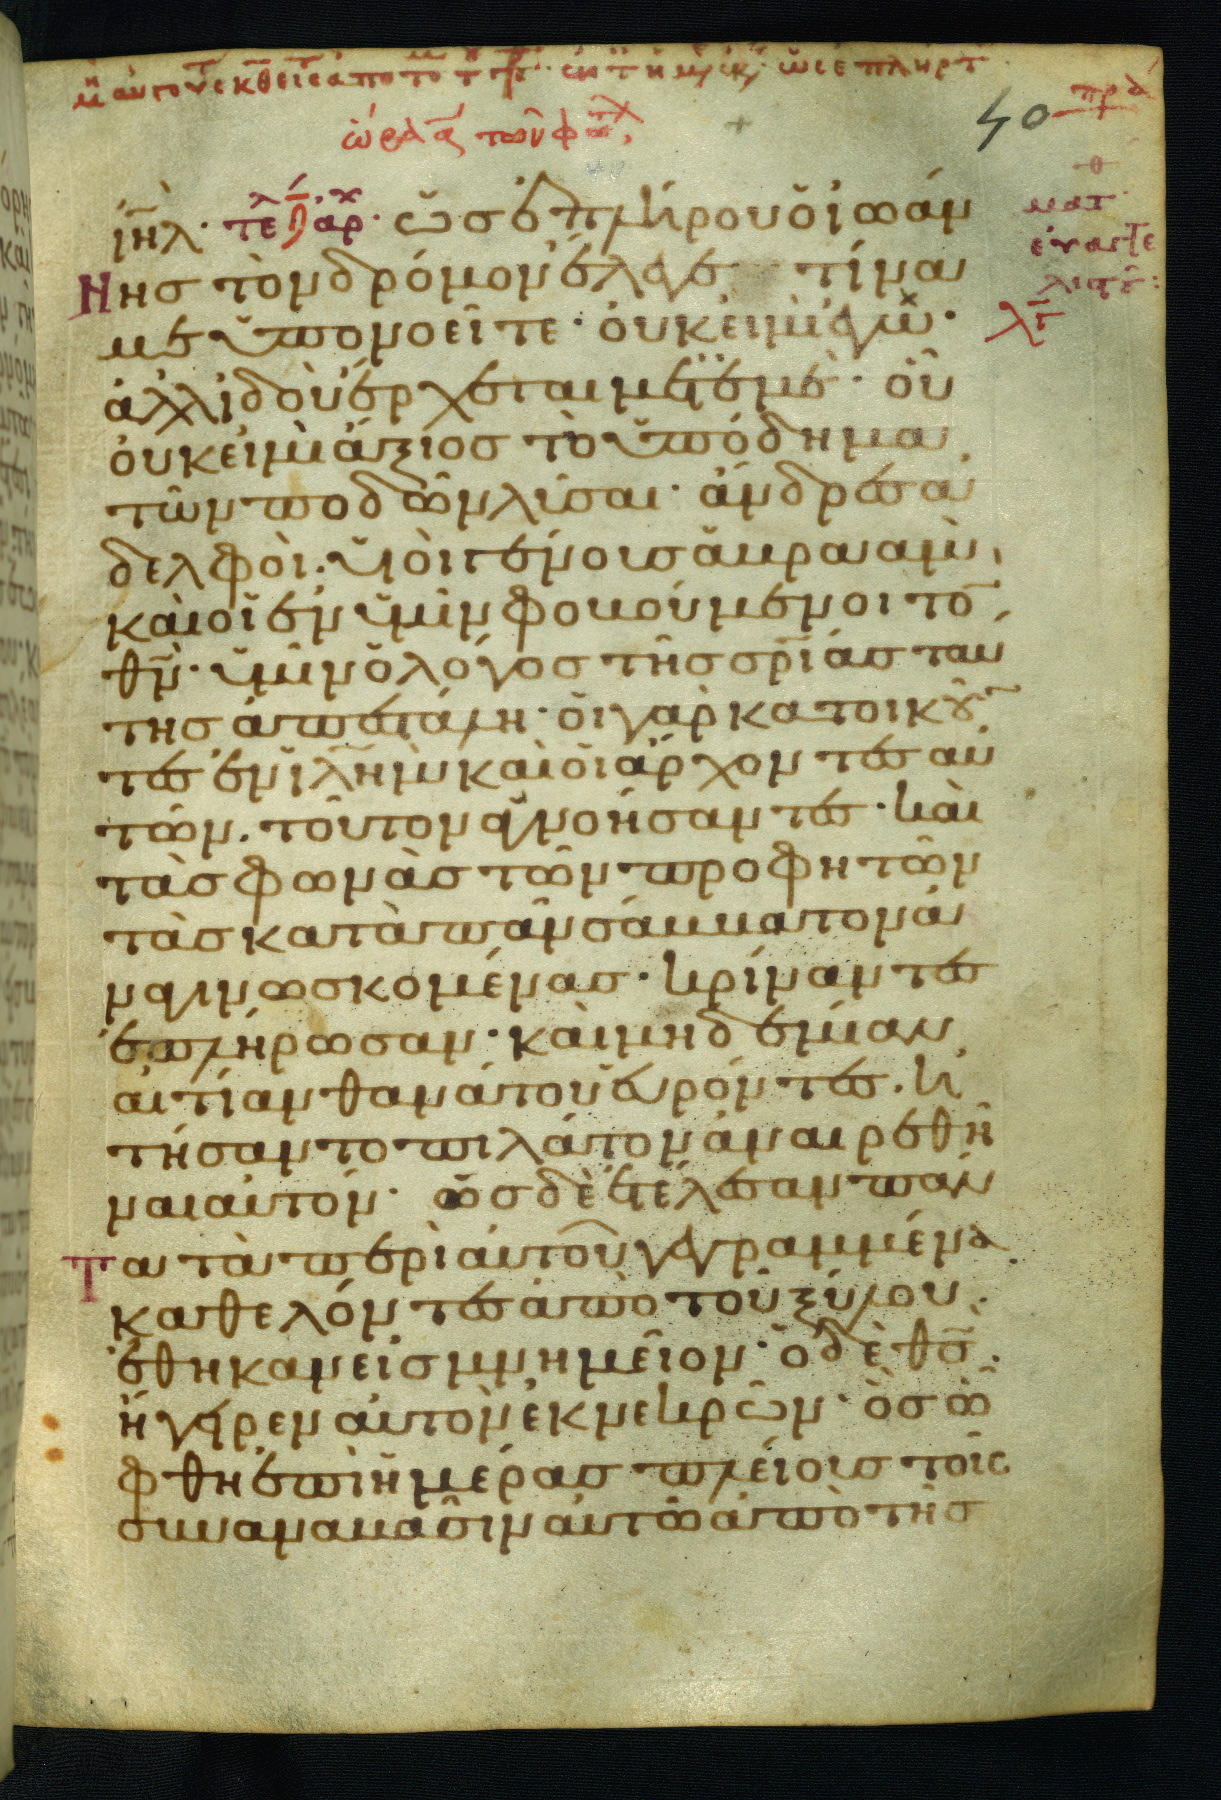 40
ιη̅λ· τε αρ· ὡσ δὲ ἐπλήρου ὁ ἰωάν
νησ τὸν δρόμον ἔλεγε τίνα
με ὑπονοεῖτε· οὐκ εἰμὶ ἐγώ·
ἀλλ ἰδοὺ ἔρχεται μετ ἐμὲ· οὗ
οὐκ εἰμὶ ἄξιοσ τὸ ὑπόδημα
τῶν ποδῶν λῦσαι· ἄνδρεσ ἀ
δελφοὶ· ὑιὸι γένουσ ἀβρααὰμ
καὶ οἱ ἐν ὑμῖν φοβούμενοι τὸ
θ̅ν· ὑμῖν ὁ λόγοσ τῆσ σρ̅ίασ ταύ
τησ ἀπεστάλη· οἱ γὰρ κατοικοῦ
τεσ ἐν ἰλ̅ημ καὶ οἱ ἄρχοντεσ αὐ
τῶν. τοῦτον ἀγνοήσαντεσ· καὶ
τὰσ φωνὰσ τῶν προφητῶν
τὰσ κατὰ πᾶν σάββατον ἀ
ναγινωσκομένασ· κρίναντεσ
ἐπλήρωσαν· καὶ μηδεμίαν
αἰτίαν θανάτου εὑρόντεσ. ἠ
τήσαντο πιλάτον ἀναιρεθῆ
ναι αὐτόν· ὡσ δὲ ἐτέλεσαν πάν
τα τὰ περὶ αὐτοῦ γεγραμμένα
καθελόντεσ ἀπὸ τοῦ ξύλου.
ἔθηκαν εἰσ μνημεῖον· ὁ δὲ θ̅σ.
ἤγειρεν αὐτὸν ἐκ νεκρῶν· ὃσ ὤ
φθη ἐπὶ ἡμέρασ πλείουσ τοῖσ
συναναβᾶσιν αὐτῶ ἀπὸ τῆσ